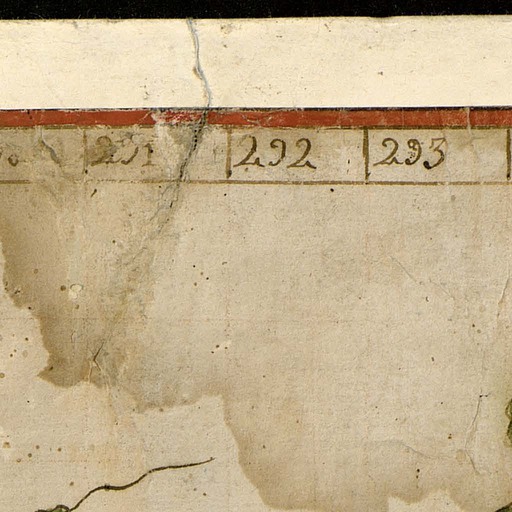 291 292 293